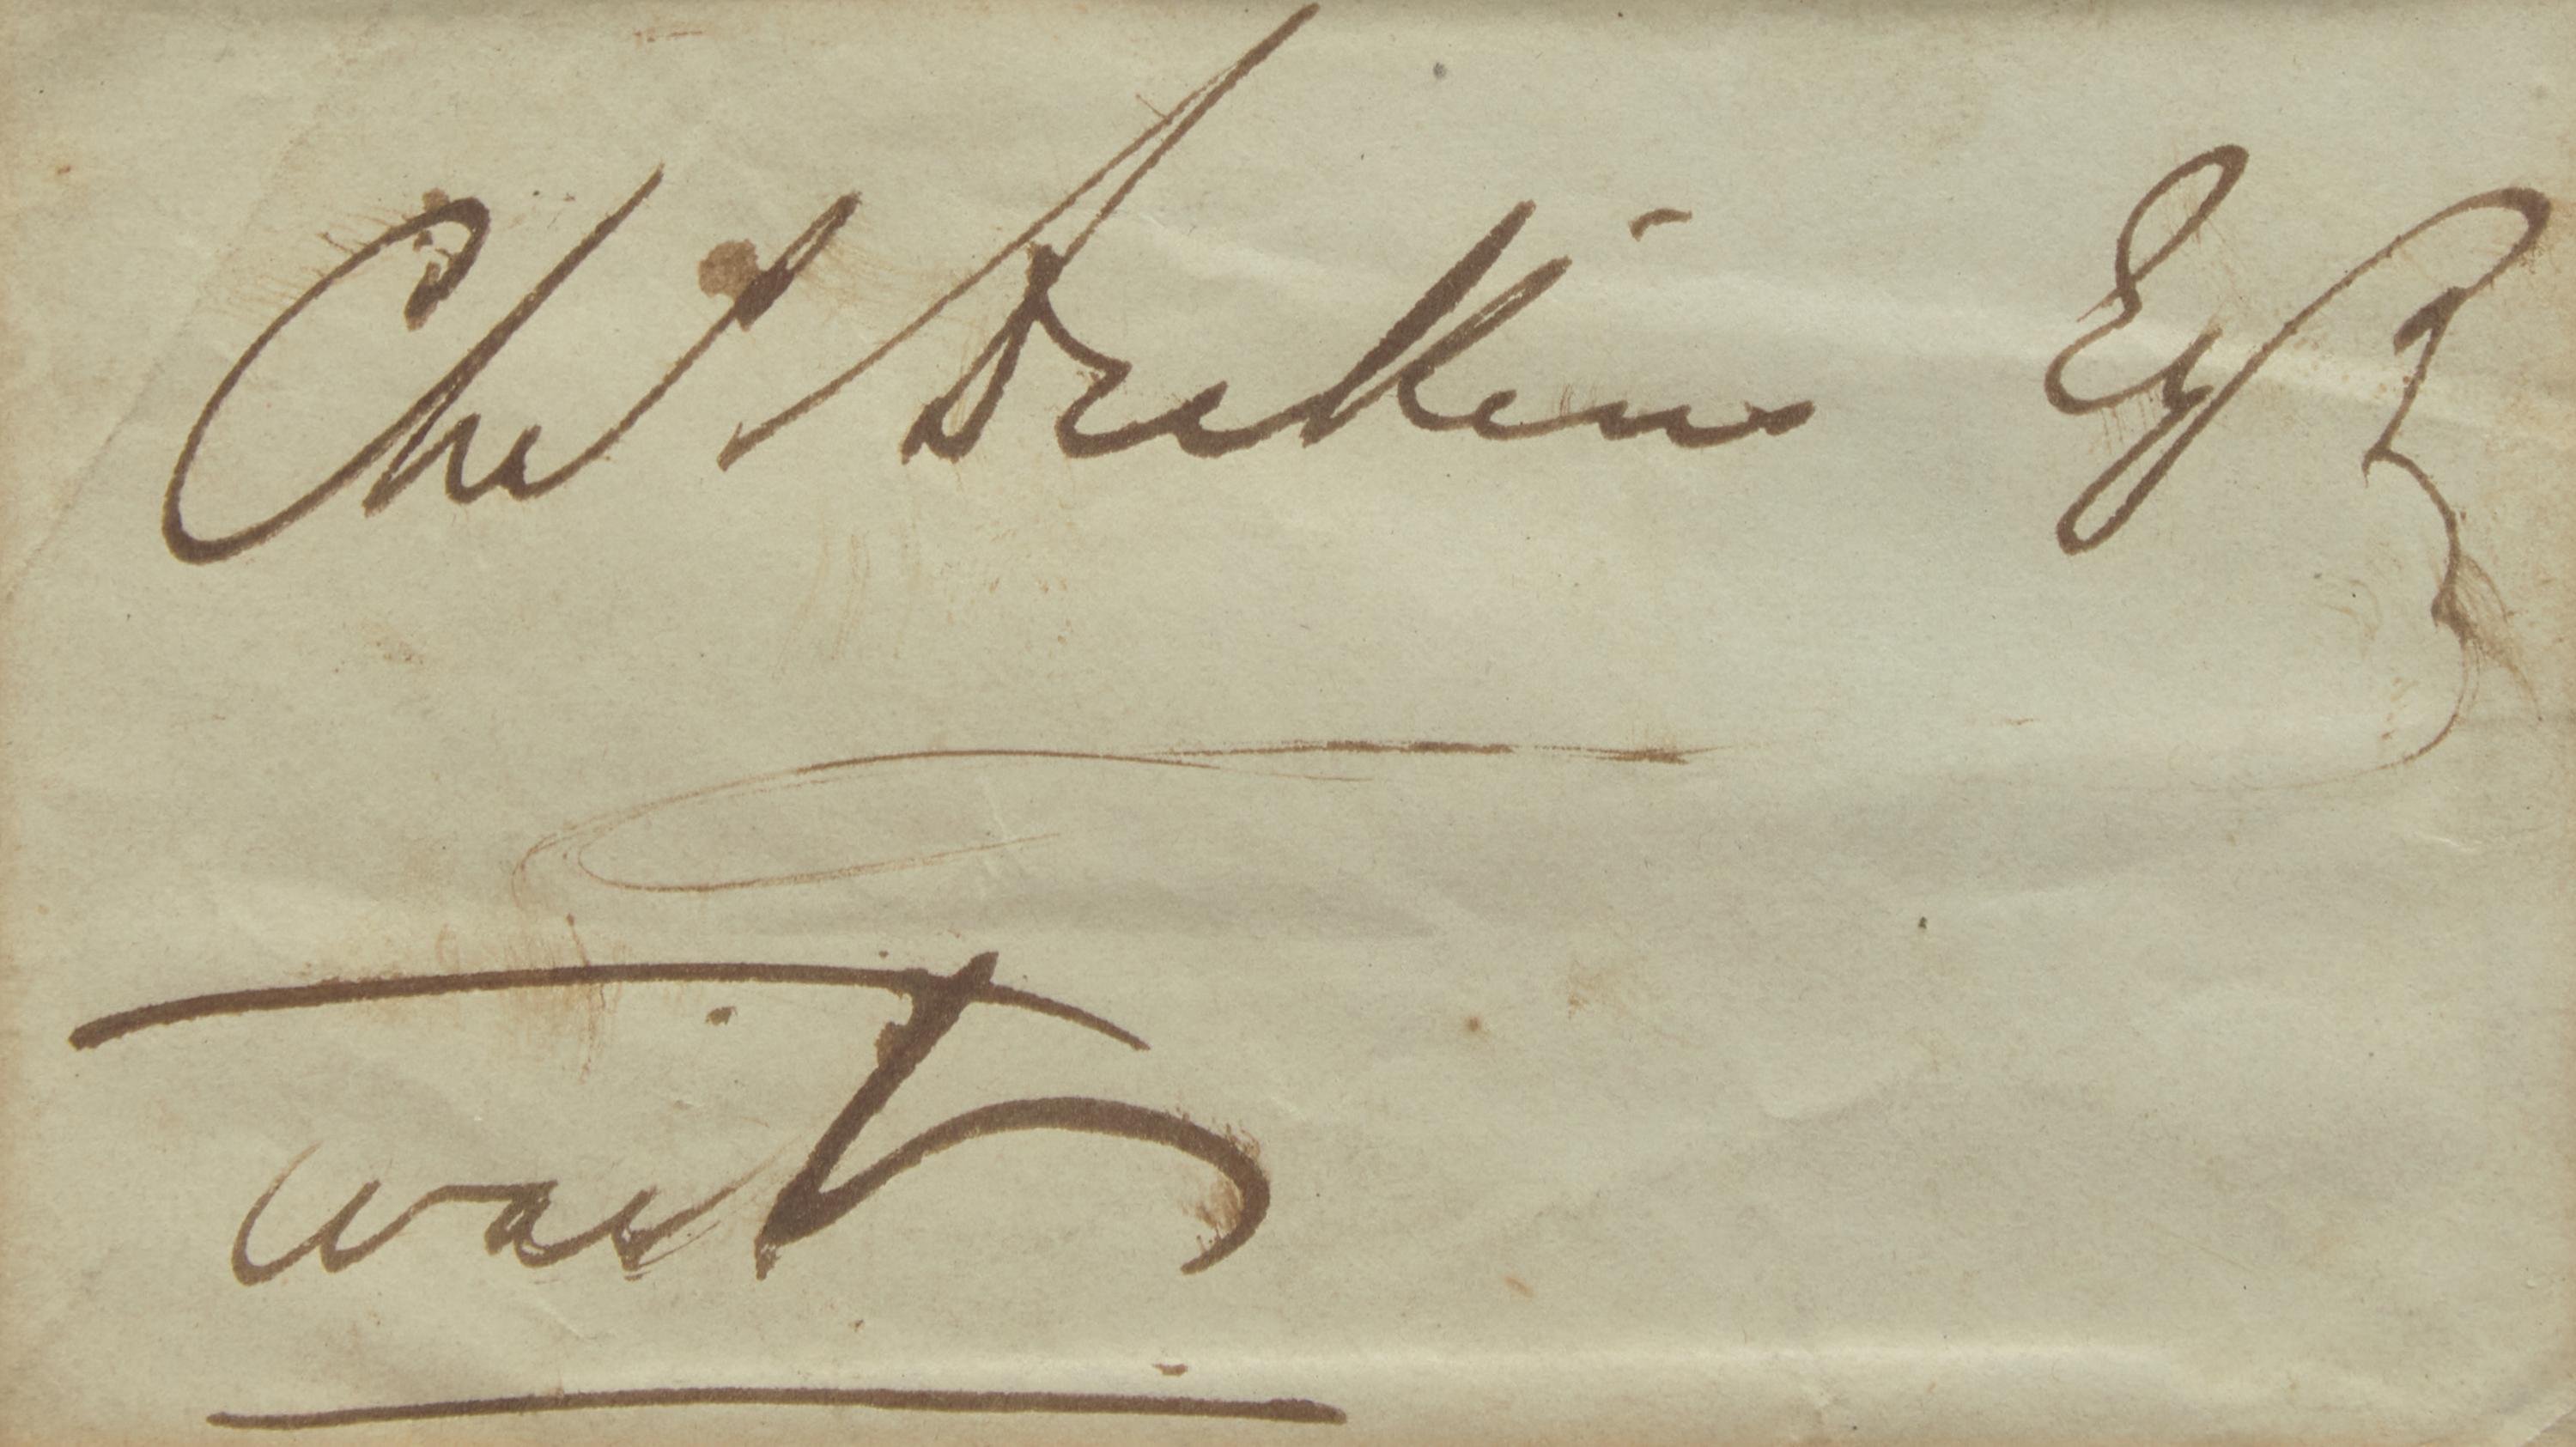 Chas Dickens Esqr
Wait